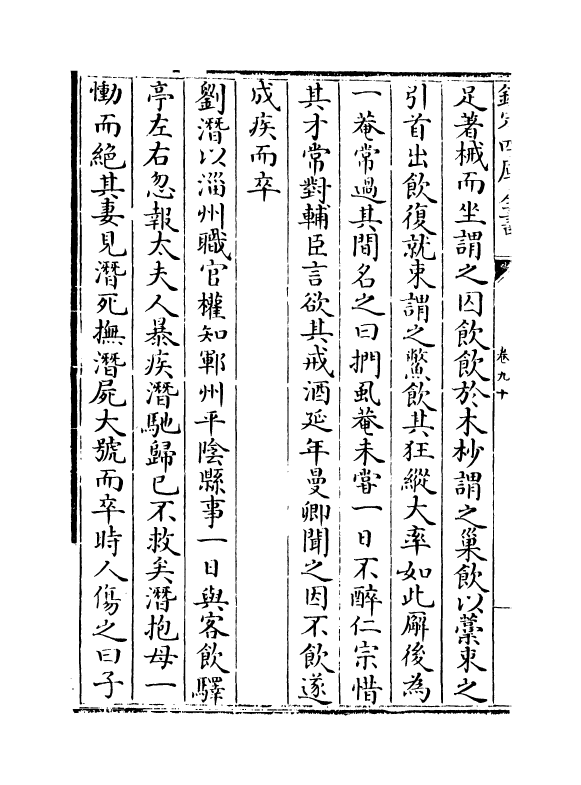 欽定四庫全書
卷九十
足著械而坐謂之囚飲飲於木杪謂之巢飲以藁束之
引首出飲復就束謂之鱉飲其狂縱大率如此廨後為
一菴常過其間名之曰捫虱菴未嘗一日不醉仁宗惜
其才常對輔臣言欲其戒酒延年曼卿聞之因不飲遂
成疾而卒
劉潛以淄州職官權知鄆州平陰縣事一日與客飲驛
亭左右忽報太夫人暴疾潛馳歸已不救矣潛抱母一
慟而絶其妻見潛死撫潛屍大號而卒時人傷之曰子